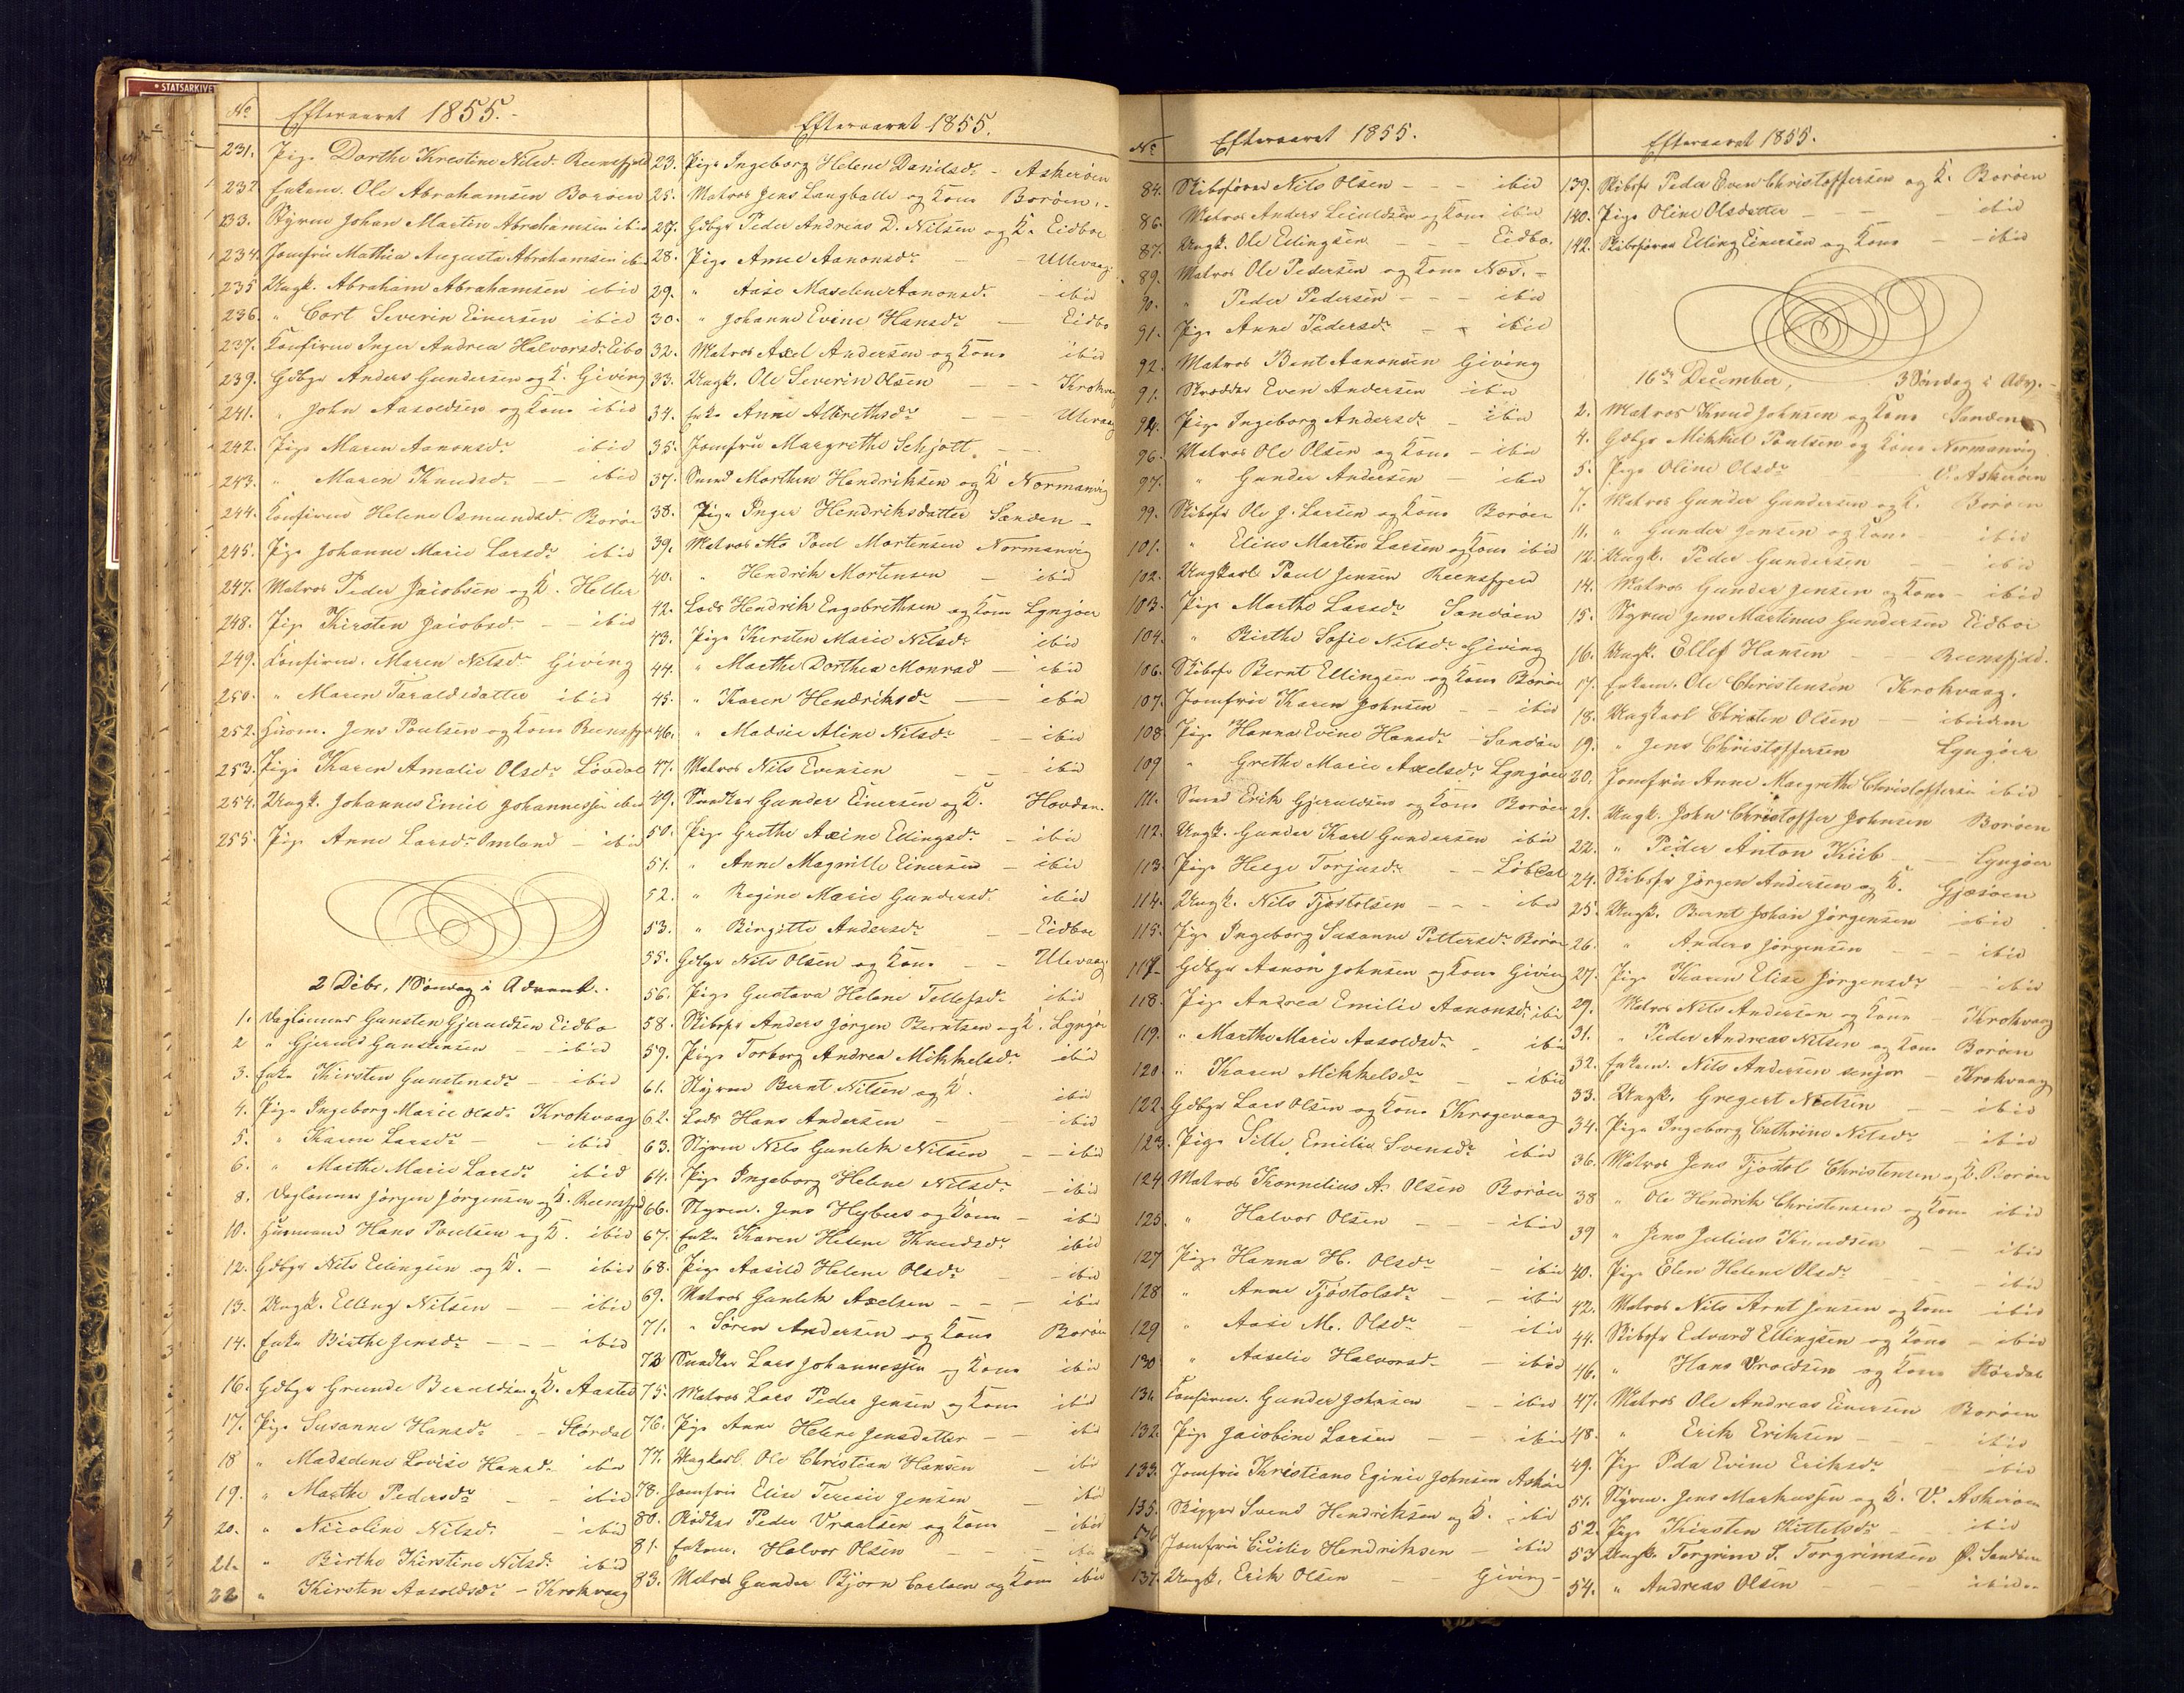 * STATSARKIVET
No Efteraaret 1855.
231. Pige Dorthe Kirstine Nilsd. Reensfjeld
232. Enkem. Ole Abrahamsen Borøen
233. Styrm Johan Martin Abrahamsen ibid
234. Jomfrü Mathea Augusta Abrahamsen ibid
235 Ungk. Abraham Abrahamsen ibid
236. " Cort Severin Einersen ibid
237. Konfirm Inger Andrea Halvorsd. Eibo
239. Gdbgr Anders Gundersen og K. Giving
241. " John Aasoldsen og Kone ibid
242. Pige Maren Aanonsd. ibid
243. " Maren Knudsd. ibid
244. Konfirm Helene Osmundsd. Borøen
245. Pige Johanne Marie Larsd. ibid
247. Matros Peder Jacobsen og K. Heller
248. Pige Kirsten Jacobsd. ibid
249. Konfirm. Maren Nilsd. Giving
250. " Maren Taraldsdatter ibid
252. Huusm. Jens Poulsen og Kone Reensfj.
253. Pige Karen Amalie Olsd. Lövdal
254. Ungk. Johannes Emil Johannessen ibid
255. Pige Anne Larsd. Omland - ibid
2 Débr, 1 Söndag i Advent.
1. Daglønner Gunsten Gjeruldsen Eidbo
2 " Gjeruld Gunstensen ibid
3. Enke Kirsten Gunstensd. ibid
4. Pige Ingeborg Marie Olsd. Krokvaag
5. " Karen Larsd. ibid
6. " Marthe Marie Larsd. ibid
8. Daglønner Jörgen Jörgensen og K. Reensfjeld
10. Huusmand Hans Poulsen og K. ibid
12. Gdbgr Nils Ellingsen og K. ibid
13. Ungk. Elling Nilsen ibid
14. Enke Birthe Jensd. ibid
16. Gdbgr Grunde Beruldsen og K. Aasted
17. Pige Susanne Hansd. Størdal
18 " Madsdene Lovise Hansd. ibid
19. " Marthe Pedersd. ibid
20. " Nicoline Nilsd. ibid
21. " Birthe Kirstine Nilsd. ibid
22 " Kirsten Aasoldsd. - Krokvaag
Efteraaret 1855.
23. Pige Ingeborg Helene Danilsd. - Askerøen
25. Matros Jens Langballe og Kone Borøen
27. Gdbgr Peder Andreas D. Nilsen og K. Eidboe
28. Pige Anne Aanonsd. Ulevaag
29. " Aase Aanonsd. ibid
30. " Johanne Evine Hansd. Eidbo
32. Matros Axel Andersen og Kone ibid
33. Ungk. Ole Severin Olsen Krokv.
34. Enke Anne Albrethsd. Ulevaag
35. Jomfrü Margrethe Schjött
37. Smed Morthen Hendriksen og K Normanvig
38. Pige Inger Hendriksdatter Sanden
39. Matros Poul Mortensen Normanvig
40. " Hendrik Mortensen ibid
42. Lods Hendrik Engebrethsen og Kone Lyngøer
43. Pige Kirsten Marie Nilsd. ibid
44. " Marthe Dorthea Monrad ibid
45. " Karen Hendriksd. ibid
46. " Madsie Aline Nilsd. ibid
47. Matros Nils Evensen ibid
49. Snedker Gunder Einersen og K. Hovden
50. Pige Grethe Axine Ellingsd. ibid
51. " Anne Magnille Einersen ibid
52. " Regine Marie Gundersd. ibid
53. " Birgitte Andersd. Eidboe
55. Gdbgr Nils Olsen og Kone Ulevaag
56. Pige Gustava Helene Tellefsd. ibid
58. Skibsfr Anders Jörgen Berntsen og K. Lyngør
59. Pige Torborg Andrea Mikkelsd. ibid
61. Styrm Bernt Nilsen og K. ibid
62. Lods Hans Andersen ibid
63. Styrm Nils Gunlek Nilsen ibid
64. Pige Ingeborg Helene Nilsd. ibid
66. Styrm. Jens og Kone ibid
67. Enke Karen Helene Knudsd. ibid
68. Pige Aasild Helene Olsd. ibid
69. Matros Gunlek Axelsen ibid
71. " Sören Andersen og Kone Borøen
73 Snedker Lars Johannessen og Kone ibid
75. Matros Lars Peder Jensen og Kone ibid
76. Pige Anne Helene Jensdatter ibid
77. Ungkarl Ole Christian Hansen ibid
78. Jomfrü Elise Teresie Jensen ibid
80. Rødker Peder Vraalsen og Kone ibid
81. Enkem. Halvor Olsen ibid
83. Matros Gunder Bjørn Carlsen og Kone ibid
No Efteraaret 1855.
84. Skibsfører Nils Olsen ibid
86. Matros Anders og Kone ibid
87. Ungk. Ole Ellingsen Eidbo.
89. Matros Ole Pedersen og Kone Næs.
90. " Peder Pedersen ibid
91. Pige Anne Pedersd. ibid
92. Matros Bent Aanonsen Giving
91. Skrædder Even Andersen ibid
94. Pige Ingeborg Andersd. ibid
96. Matros Ole Olsen og Kone ibid
97. " Gunder Andersen ibid
99. Skibsfr Ole J. Larsen og Kone Borøen
101. " Elias Martin Larsen og Kone ibid
102. Ungkarl Poul Jensen Reensfjeld
103. Pige Marthe Larsd. Sandøen
104. " Birthe Sofie Nilsd. Giving
106. Skibsfr Bernt Ellingsen og Kone Borøen
107. Jomfrü Karen Johnsen ibid
108 Pige Hanna Evine Hansd. Sandøen
109 " Grethe Marie Axelsd. Lyngøer
111. Smed Erik Gjeruldsen og Kone Borøen
112. Ungk. Gunder Karl Gundersen ibid
113. Pige Helge Torjusd. Löbdal
114. Ungk. Nils Tjöstolsen ibid
115. Pige Ingeborg Susanne Pettersd. Borøen
117. Gdbgr Aanon Johnsen og Kone Giving
118. Pige Andrea Emilie Aanonsd. ibid
119. " Marthe Marie Aasoldsd. ibid
120. " Karen Mikkelsd. ibid
122. Gdbgr Lars Olsen og Kone Krogevaag
123. Pige Sille Emilie Svensd. ibid
124 Matros Kornelius A. Olsen Borøen
125. " Halvor Olsen ibid
127 Pige Hanna H. Olsd. ibid
128 " Anne Tjöstolsd. ibid
129 " Aase M. Olsd. ibid
130 " Aaselie Halvorsd. ibid
131. Konfirm. Gunder Johnsen ibid
132. Pige Jacobine Larsen ibid
133. Jomfrü Khristiane Eginie Johnsen Askør
135. Skipper Svend Hendriksen og K. ibid
136 Jomfrü Cicilie Hendriksen ibid
137. Ungk. Erik Olsen Giving
Efteraaret 1855.
139. Skibsfr Peder Even Christoffersen og K. Borøen
140. Pige Oline Olsdatter ibid
142. Skibsfører Elling Einersen og Kone ibid
16de December, 3 Söndag i Adv.
2. Matros Knud Johnsen og Kone Sanden
4. Gdbgr Mikkel Poulsen og Kone Normanvig
5. Pige Oline Olsd. Askerøen
7. Matros Gunder Gundersen og K. Borøen
11. " Gunder Jensen og Kone ibid
12. Ungk. Peder Gundersen ibid
14. Matros Gunder Jensen og Kone ibid
15. Styrm Jens Martinus Gundersen Eidboe
16. Ungk. Ellef Hansen Reensfjeld.
17. Enkem. Ole Christensen Krokvaag.
18. Ungkarl Christen Olsen ibidem
19. " Jens Christoffersen Lyngöer
20. Jomfrü Anne Margrethe Christoffersen ibid
21. Ungk. John Christoffer Johnsen Borøen
22. " Peder Anton Kiib Lyngøer
24. Skibsfr Jörgen Andersen og K. Gjæsøen
25. Ungk. Bernt Johan Jörgensen ibid
26. " Anders Jörgensen ibid
27. Pige Karen Elise Jörgensd. ibid
29. Matros Nils Andersen og Kone Krokvaag
31. " Peder Andreas Nilsen og Kone Borøen
32. Enkem. Nils Andersen senjor Krokvaag
33. Ungk. Gregert Nielsen ibid
34. Pige Ingeborg Cathrine Nilsd. ibid
36. Matros Jens Tjöstol Christensen og K. Borøen
38 " Ole Hendrik Christensen og Kone ibid
39 " Jens Julius Knudsen ibid
40. Pige Elen Helene Olsd. ibid
42. Matros Nils Arnt Jensen og Kone ibid
44. Skibsfr Edvard Ellingsen og Kone ibid
46. " Hans Vroldsen og Kone Størdal
47. Matros Ole Andreas Einersen Borøen
48. " Erik Eriksen ibid
49. Pige Pda Evine Eriksd. ibid
51. Styrm. Jens Markussen og K. V. Askerøen
52. Pige Kirsten Kittelsd. ibid
53 Ungk. Torgrim T. Torgrimsen Sandøen
54. " Andreas Olsen ibid